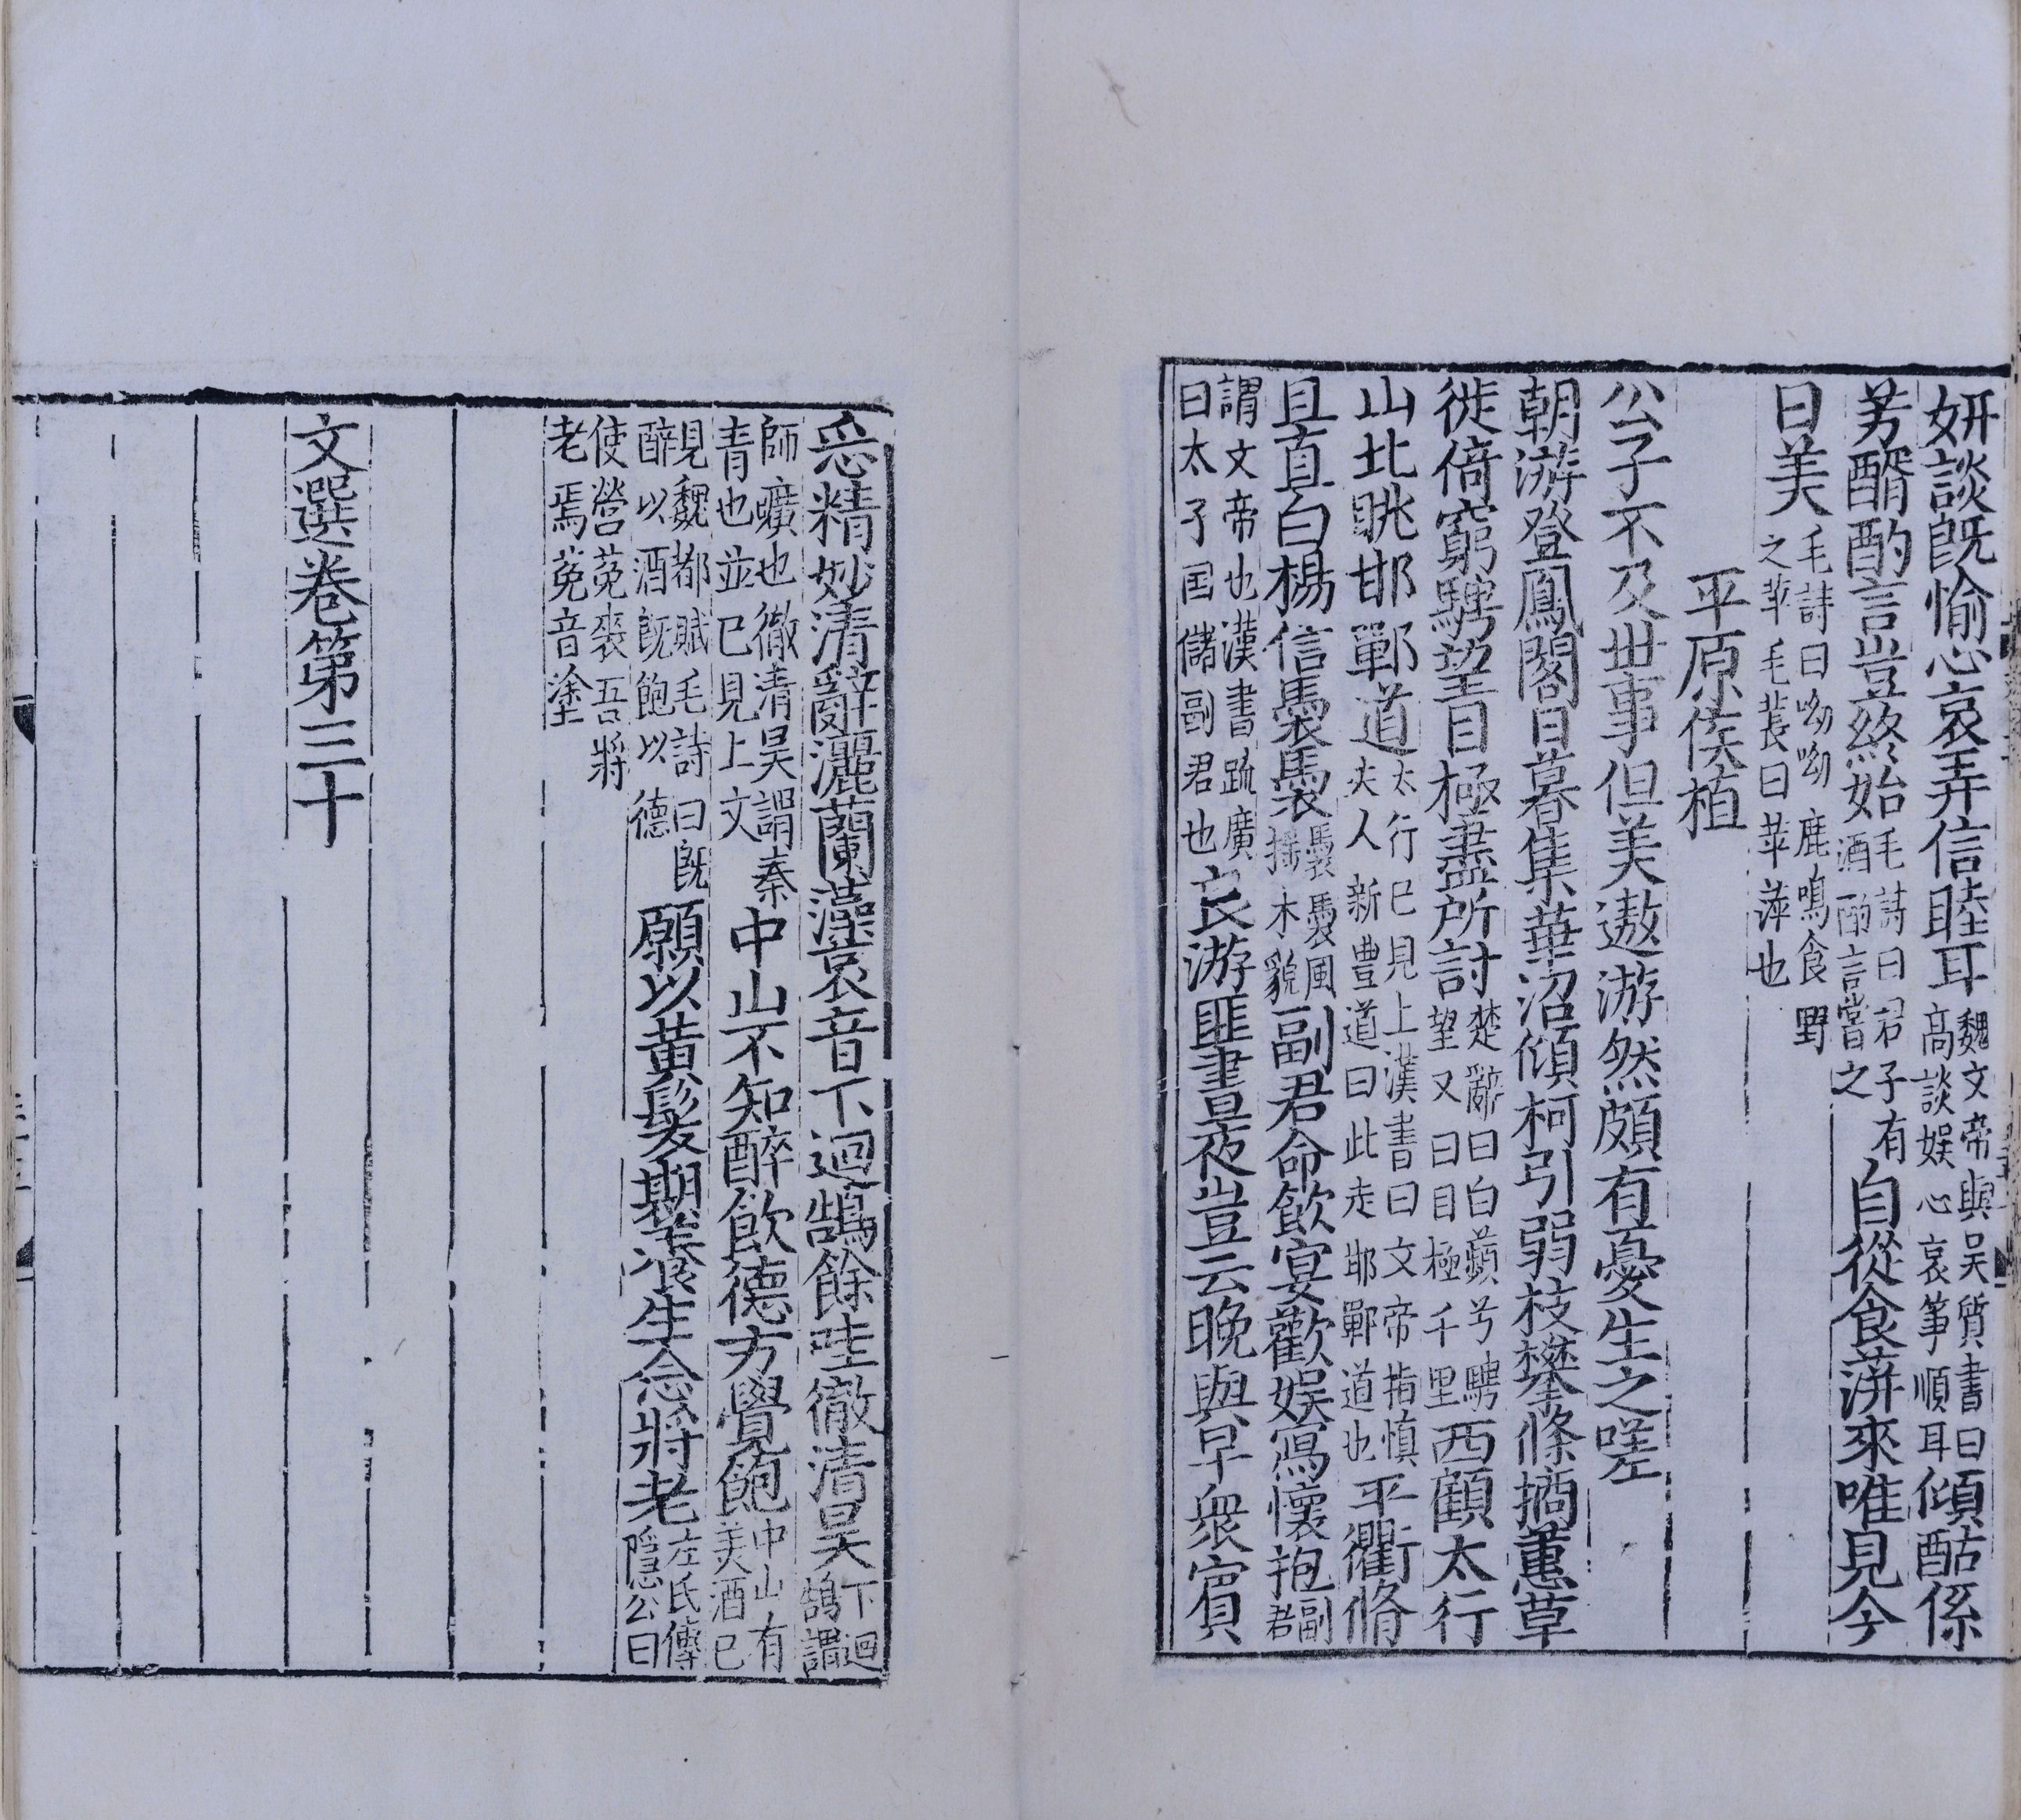 妍談旣愉心哀弄信睦耳魏文帝與吳質書曰高談娱心哀筝順耳傾酤係
芳醑酌言豈終始毛詩曰君子有酒酌言嘗之自從食蓱來唯見今
日美毛詩曰呦呦鹿鳴食野之苹毛萇曰苹萍也
平原侯植
公子不及世事但美遨游然頗有憂生之嗟
朝游登鳳閣日暮集華沼傾柯引弱枝攀條摘蕙草
徙倚窮騁望目極盡所討楚辭曰白蘋兮騁望又曰目極千里西顧太行
山北眺邯鄲道太行已見上漢書曰文帝指慎夫人新豊道曰此走邯鄲道也平衢脩
且直白楊信褭褭褭褭風摇木貌副君命飲宴歡娱寫懷抱副君
謂文帝也漢書疏廣曰太子国儲副君也良游匪晝夜豈云晚與早衆賓
悉精妙清辭灑蘭藻哀音下迴鵠餘哇徹清昊下迴鵠謂
師曠也徹清昊謂秦青也並已見上文中山不知醉飲德方覺飽中山有美酒已
見魏都賦毛詩曰旣醉以酒旣飽以德願以黄髮期養生念將老左氏傳隱公曰
使營菟裘吾將老焉菟音塗
文選卷第三十